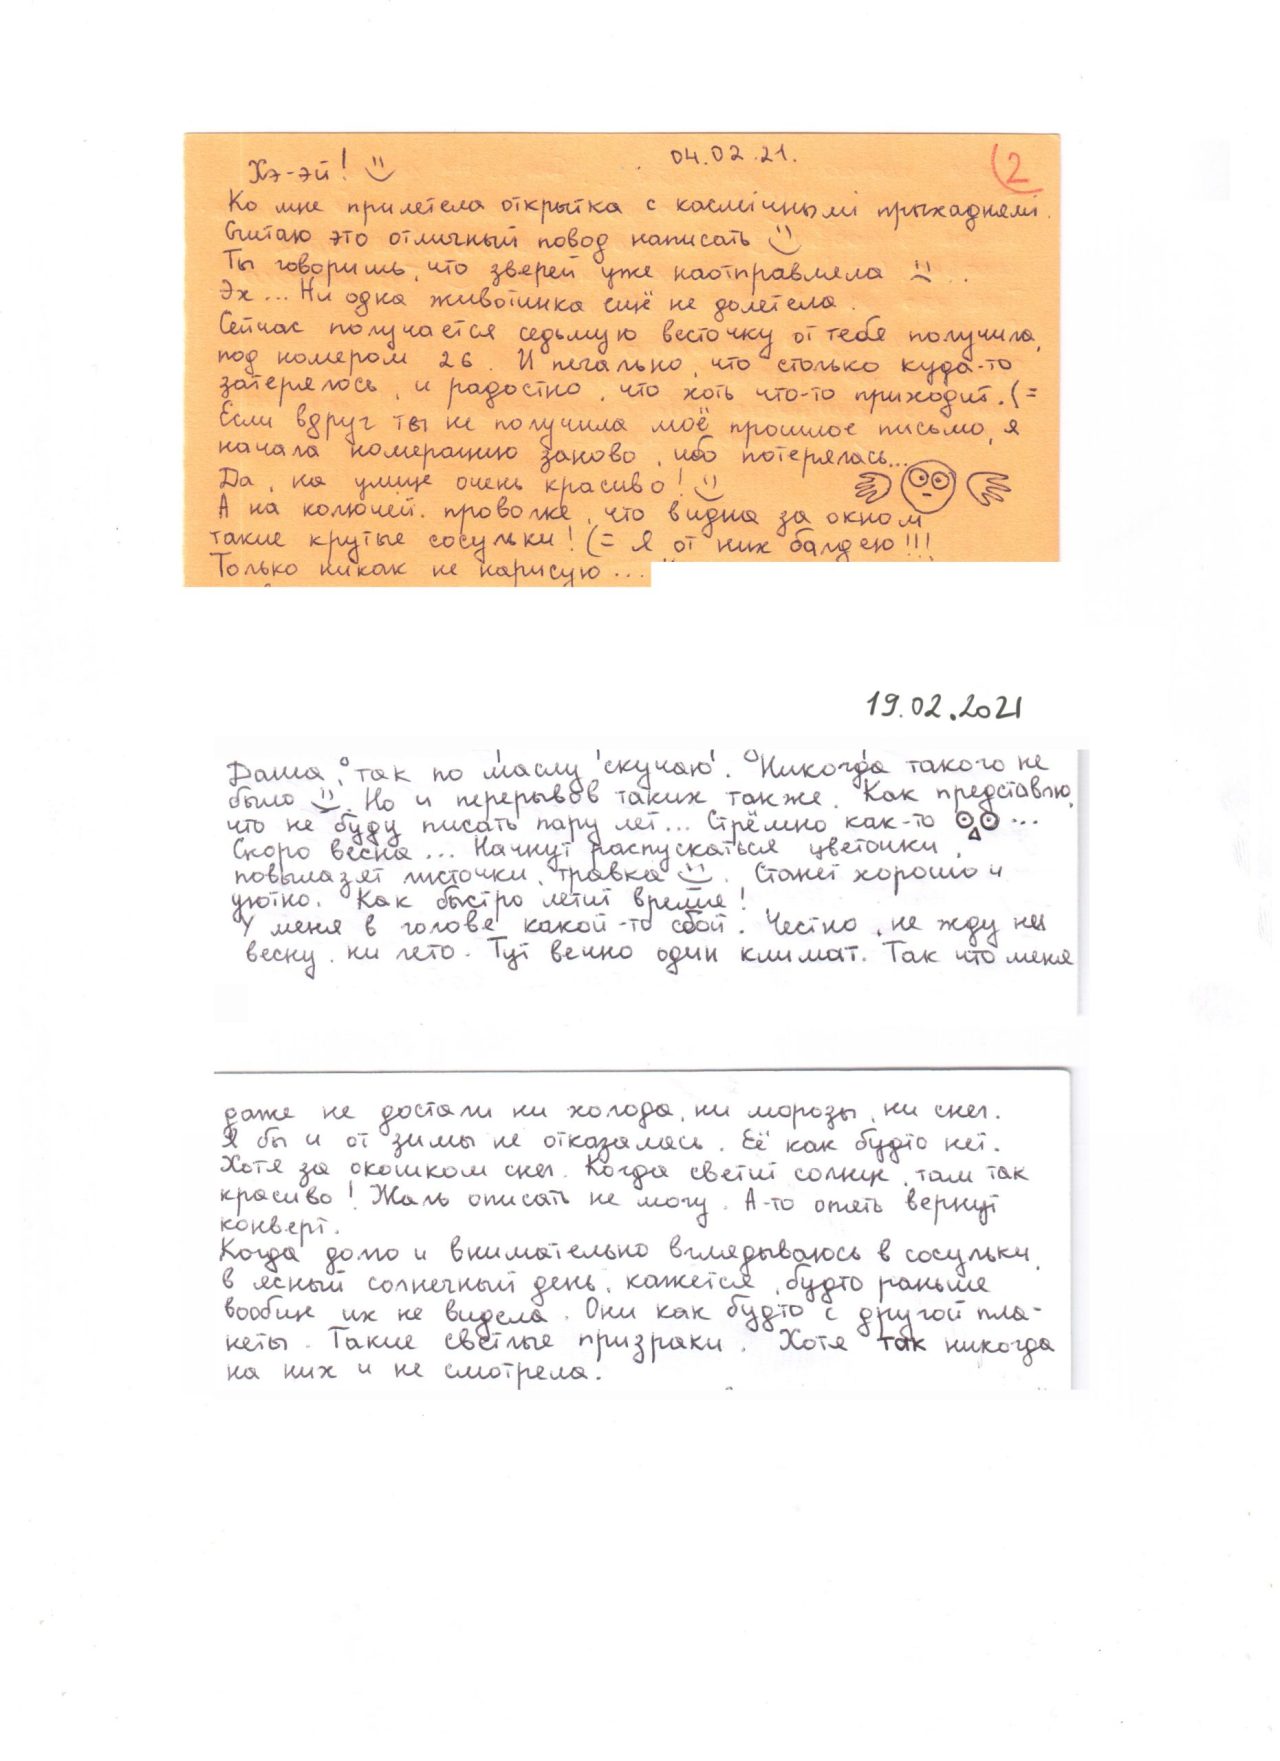 Хэ-эй!
04.02.21.
2
Ко мне прилетела открытка с касмічнымі прыхаднямі.
Считаю это отличный повод написать
Ты говоришь, что зверей уже наотправляла ...
Эх... Ни одна животинка ещё не долетела.
Сейчас получается седьмую весточку от тебя получила,
под номером 26. И печально, что столько куда-то
затерялось, и радостно, что хоть что-то приходит. (=
Если вдруг ты не получила моё прошлое письмо, я
начала нумерацию заново, ибо потерялась...
Да, на улице очень красиво!
А на колючей проволке, что видна за окном
такие крутые сосульки! (= Я от них балдею!!!
Только никак не нарисую...
19.02.2021
Даша, так по маслу скучаю. Никогда такого не
было. Но и перерывов таких также. Как представлю,
что не буду писать пару лет... Стрёмно как-то ...
Скоро весна... Начнут распускаться цветочки,
повылазят листочки, травка. Станет хорошо и
уютно. Как быстро летит время!
У меня в голове какой-то сбой. Честно, не жду ни
весну, ни лето. Тут вечно один климат. Так что меня
даже не достали ни холода, ни морозы, ни снег.
Я бы и от зимы не отказалась. Её как будто нет.
Хотя за окошком снег. Когда светит солнце, там так
красиво! Жаль описать не могу. А-то опять вернут
конверт.
Когда долго и внимательно вглядываюсь в сосульки,
в ясный солнечный день, кажется, будто раньше
вообще их не видела. Они как будто с другой пла-
неты. Такие светлые призраки. Хотя так никогда
на них и не смотрела.